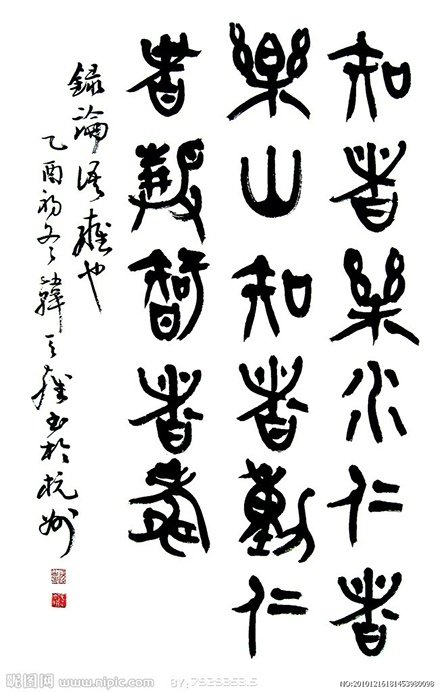 知者樂水仁者
樂山知者動仁
者靜智者壽
錄論語雍也
乙酉初冬韓天雍書於杭州
昵图网 www.nipic.com
NO:20101216181453980098